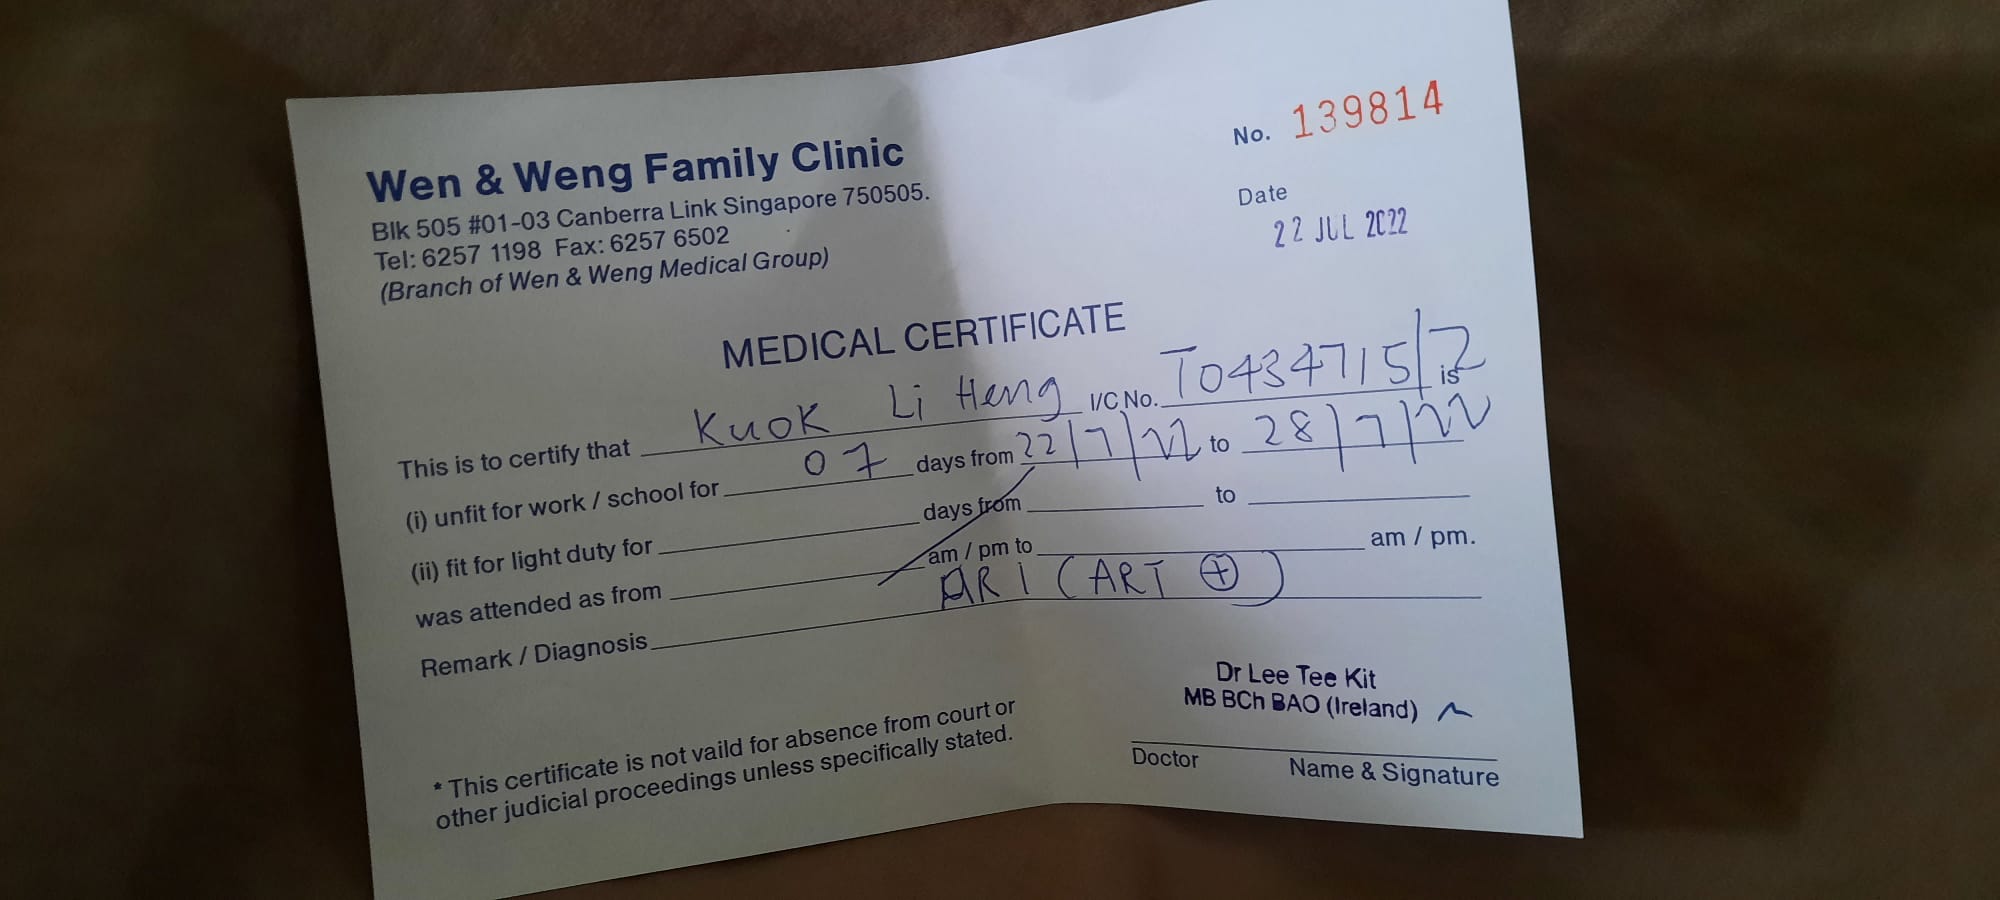 Wen & Weng Family Clinic
Blk 505 #01-03 Canberra Link Singapore 750505.
Tel: 6257 1198 Fax: 6257 6502
(Branch of Wen & Weng Medical Group)
No. 139814
Date
22 JUL 2022
MEDICAL CERTIFICATE
This is to certify that Kuok Li Heng I/C No. T0434715/Z is
(i) unfit for work / school for 07 days from 22/7/22 to 28/7/22
(ii) fit for light duty for days from to
was attended as from am / pm to am / pm.
Remark / Diagnosis ARI (ART +)
Dr Lee Tee Kit
MB BCh BAO (Ireland)
Doctor Name & Signature
* This certificate is not vaild for absence from court or
other judicial proceedings unless specifically stated.